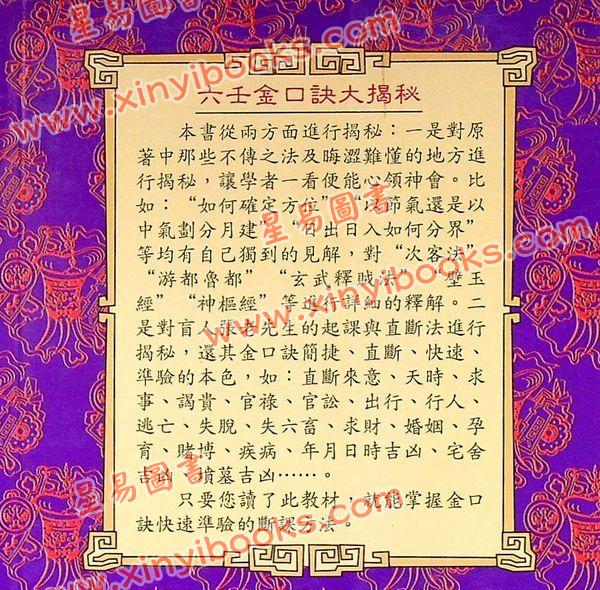 星易圖書
www.xinyibooks.com
六壬金口訣大揭秘
本書從兩方面進行揭秘：一是對原
著中那些不傳之法及晦澀難懂的地方進
行揭秘，讓學者一看便能心領神會。比
如：“如何確定方位”“以節氣還是以
中氣劃分月建”“日出日入如何分界”
等均有自己獨到的見解，對“次客法”
“游都魯都”“玄武釋賊法”“璧玉
經”“神樞經”等進行詳細的釋解。二
是對盲人張老先生的起課與直斷法進行
揭秘，還其金口訣簡捷、直斷、快速、
準驗的本色，如：直斷來意、天時、求
事、謁貴、官祿、官訟、出行、行人
逃亡、失脫、失六畜、求財、婚姻、孕
育、賭博、疾病、年月日時吉凶、宅舍
吉凶、墳墓吉凶……。
只要您讀了此教材，就能掌握金口
訣快速準驗的斷課方法。
星易圖書
www.xinyibooks.com
星易圖書
www.xinyibooks.com